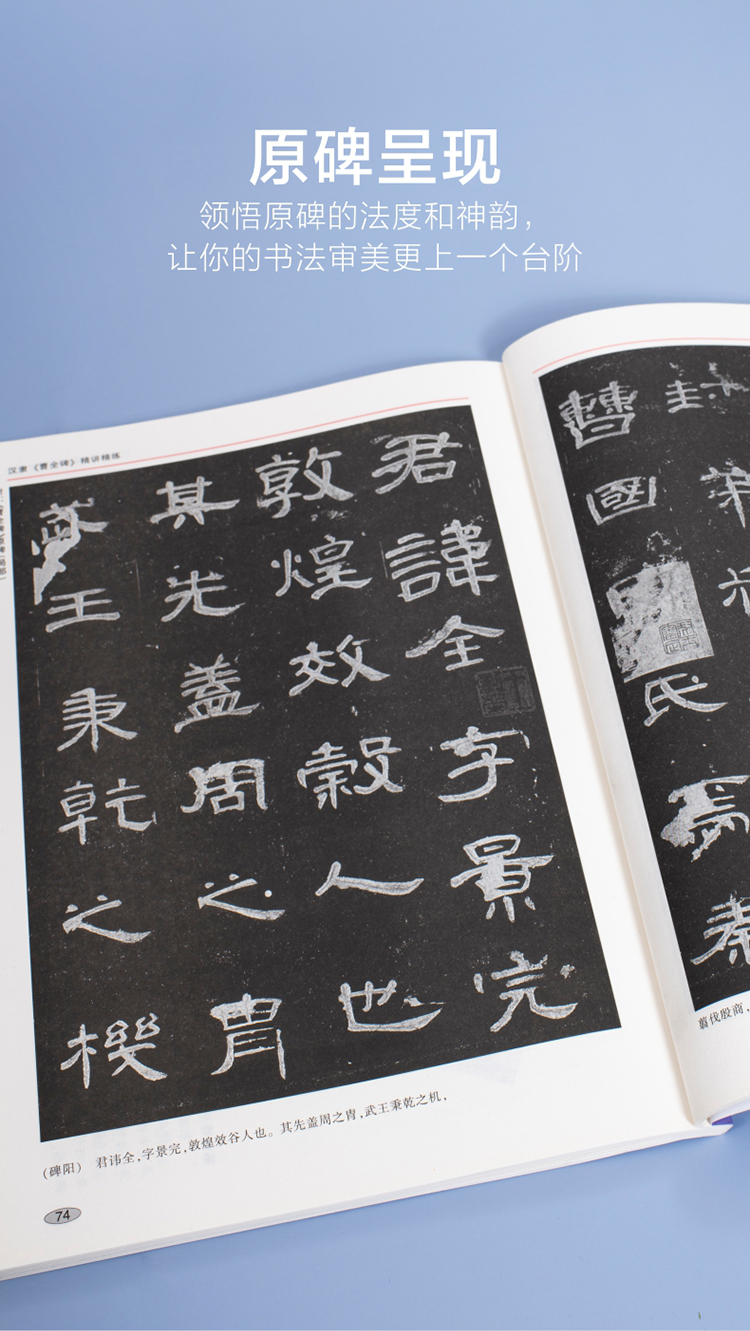 原碑呈现
领悟原碑的法度和神韵，
让你的书法审美更上一个台阶
汉隶《曹全碑》精讲精练
君諱全字景完
敦煌效穀人也
其先蓋周之胄
武王秉乾之機
(碑阳) 君讳全，字景完，敦煌效谷人也。其先盖周之胄，武王秉乾之机，
74
封
弟
國
氏
焉
秦
翦伐殷商，